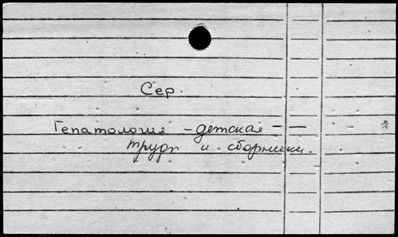 Сер.
Гепатология – детская – –
труды и сборники.